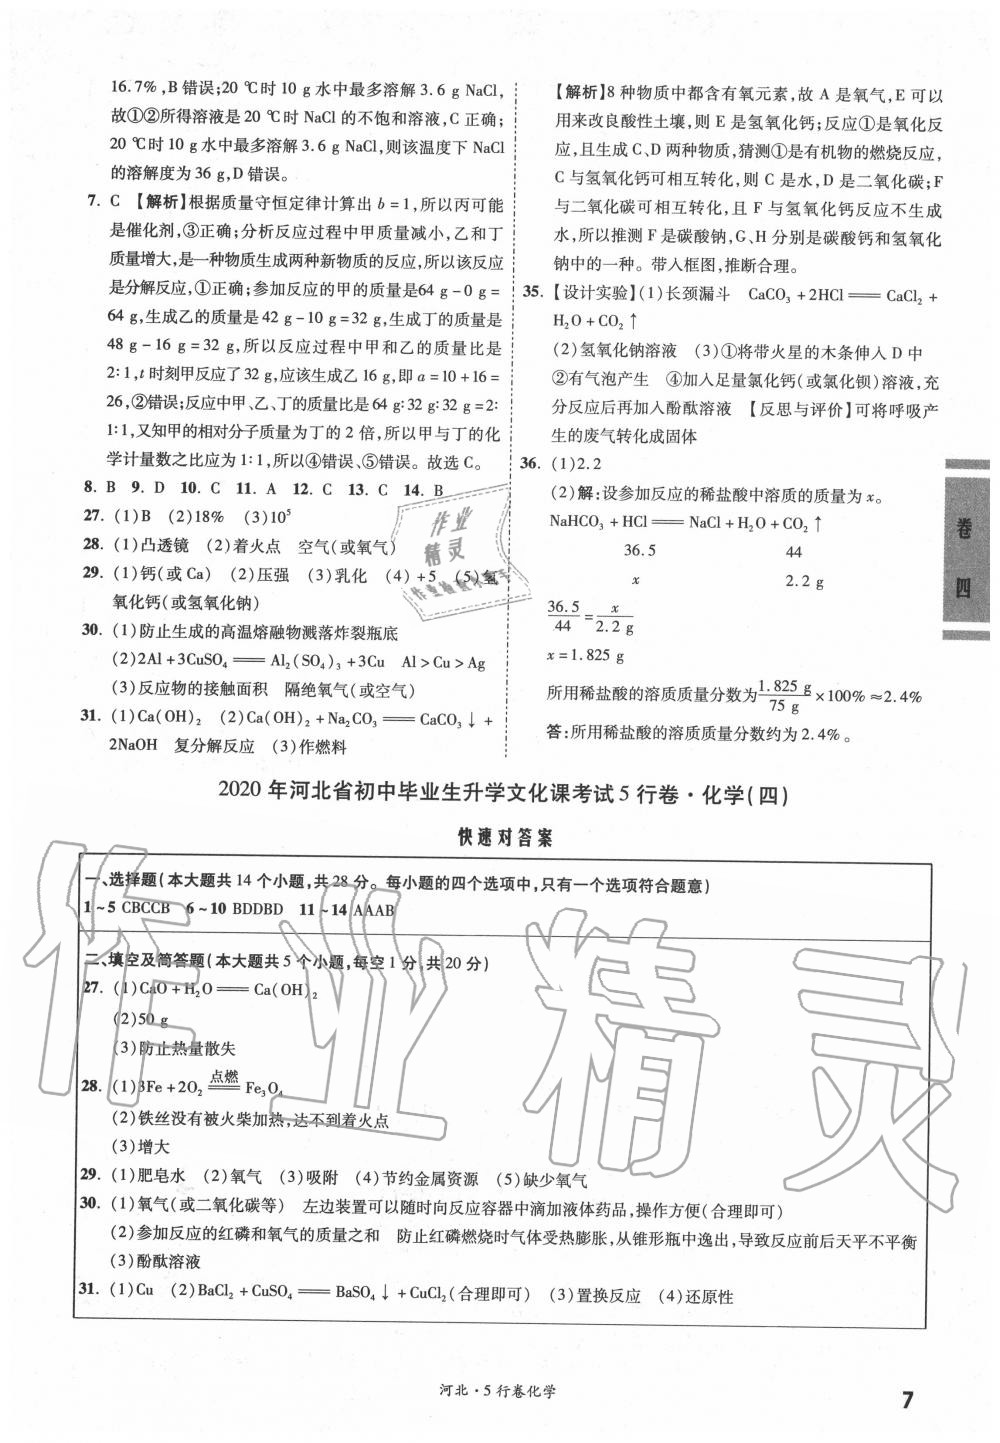 16.7%,B错误;20 ℃时10 g水中最多溶解3.6 g NaCl,
故①②所得溶液是20 ℃时NaCl的不饱和溶液,C正确;
20 ℃时10 g水中最多溶解3.6 g NaCl,则该温度下NaCl
的溶解度为36 g,D错误。
7. C 【解析】根据质量守恒定律计算出b=1,所以丙可能
是催化剂,③正确;分析反应过程中甲质量减小,乙和丁
质量增大,是一种物质生成两种新物质的反应,所以该反应
是分解反应,①正确;参加反应的甲的质量是64 g-0 g=
64 g,生成乙的质量是42 g-10 g=32 g,生成丁的质量是
48 g-16 g=32 g,所以反应过程中甲和乙的质量比是
2∶1,t时刻甲反应了32 g,应该生成乙16 g,即a=10+16=
26,②错误;反应中甲、乙、丁的质量比是64 g∶32 g∶32 g=2∶
1∶1,又知甲的相对分子质量为丁的2倍,所以甲与丁的化
学计量数之比应为1∶1,所以④错误、⑤错误。故选C。
8. B 9. D 10. C 11. A 12. C 13. C 14. B
27. (1)B (2)18% (3)10⁵
28. (1)凸透镜 (2)着火点 空气(或氧气)
29. (1)钙(或Ca) (2)压强 (3)乳化 (4)+5 (5)氢
氧化钙(或氢氧化钠)
30. (1)防止生成的高温熔融物溅落炸裂瓶底
(2)2Al+3CuSO₄══Al₂(SO₄)₃+3Cu Al>Cu>Ag
(3)反应物的接触面积 隔绝氧气(或空气)
31. (1)Ca(OH)₂ (2)Ca(OH)₂+Na₂CO₃══CaCO₃↓+
2NaOH 复分解反应 (3)作燃料
【解析】8种物质中都含有氧元素,故A是氧气,E可以
用来改良酸性土壤,则E是氢氧化钙;反应①是氧化反
应,且生成C、D两种物质,猜测①是有机物的燃烧反应,
C与氢氧化钙可相互转化,则C是水,D是二氧化碳;F
与二氧化碳可相互转化,且F与氢氧化钙反应不生成
水,所以推测F是碳酸钠,G、H分别是碳酸钙和氢氧化
钠中的一种。带入框图,推断合理。
35. 【设计实验】(1)长颈漏斗 CaCO₃+2HCl══CaCl₂+
H₂O+CO₂↑
(2)氢氧化钠溶液 (3)①将带火星的木条伸入D中
②有气泡产生 ④加入足量氯化钙(或氯化钡)溶液,充
分反应后再加入酚酞溶液 【反思与评价】可将呼吸产
生的废气转化成固体
36. (1)2.2
(2)解:设参加反应的稀盐酸中溶质的质量为x。
NaHCO₃+HCl══NaCl+H₂O+CO₂↑
36.5 44
x 2.2 g
36.5/44=x/2.2 g
x=1.825 g
所用稀盐酸的溶质质量分数为1.825 g/75 g×100%≈2.4%
答:所用稀盐酸的溶质质量分数约为2.4%。
卷
四
2020年河北省初中毕业生升学文化课考试5行卷·化学(四)
快速对答案
一、选择题(本大题共14个小题,共28分。每小题的四个选项中,只有一个选项符合题意)
1~5 CBCCB 6~10 BDDBD 11~14 AAAB
二、填空及简答题(本大题共5个小题,每空1分,共20分)
27. (1)CaO+H₂O══Ca(OH)₂
(2)50 g
(3)防止热量散失
28. (1)3Fe+2O₂ 点燃══ Fe₃O₄
(2)铁丝没有被火柴加热,达不到着火点
(3)增大
29. (1)肥皂水 (2)氧气 (3)吸附 (4)节约金属资源 (5)缺少氧气
30. (1)氧气(或二氧化碳等) 左边装置可以随时向反应容器中滴加液体药品,操作方便(合理即可)
(2)参加反应的红磷和氧气的质量之和 防止红磷燃烧时气体受热膨胀,从锥形瓶中逸出,导致反应前后天平不平衡
(3)酚酞溶液
31. (1)Cu (2)BaCl₂+CuSO₄══BaSO₄↓+CuCl₂(合理即可) (3)置换反应 (4)还原性
河北·5行卷化学
7
作业精灵
作业
精灵